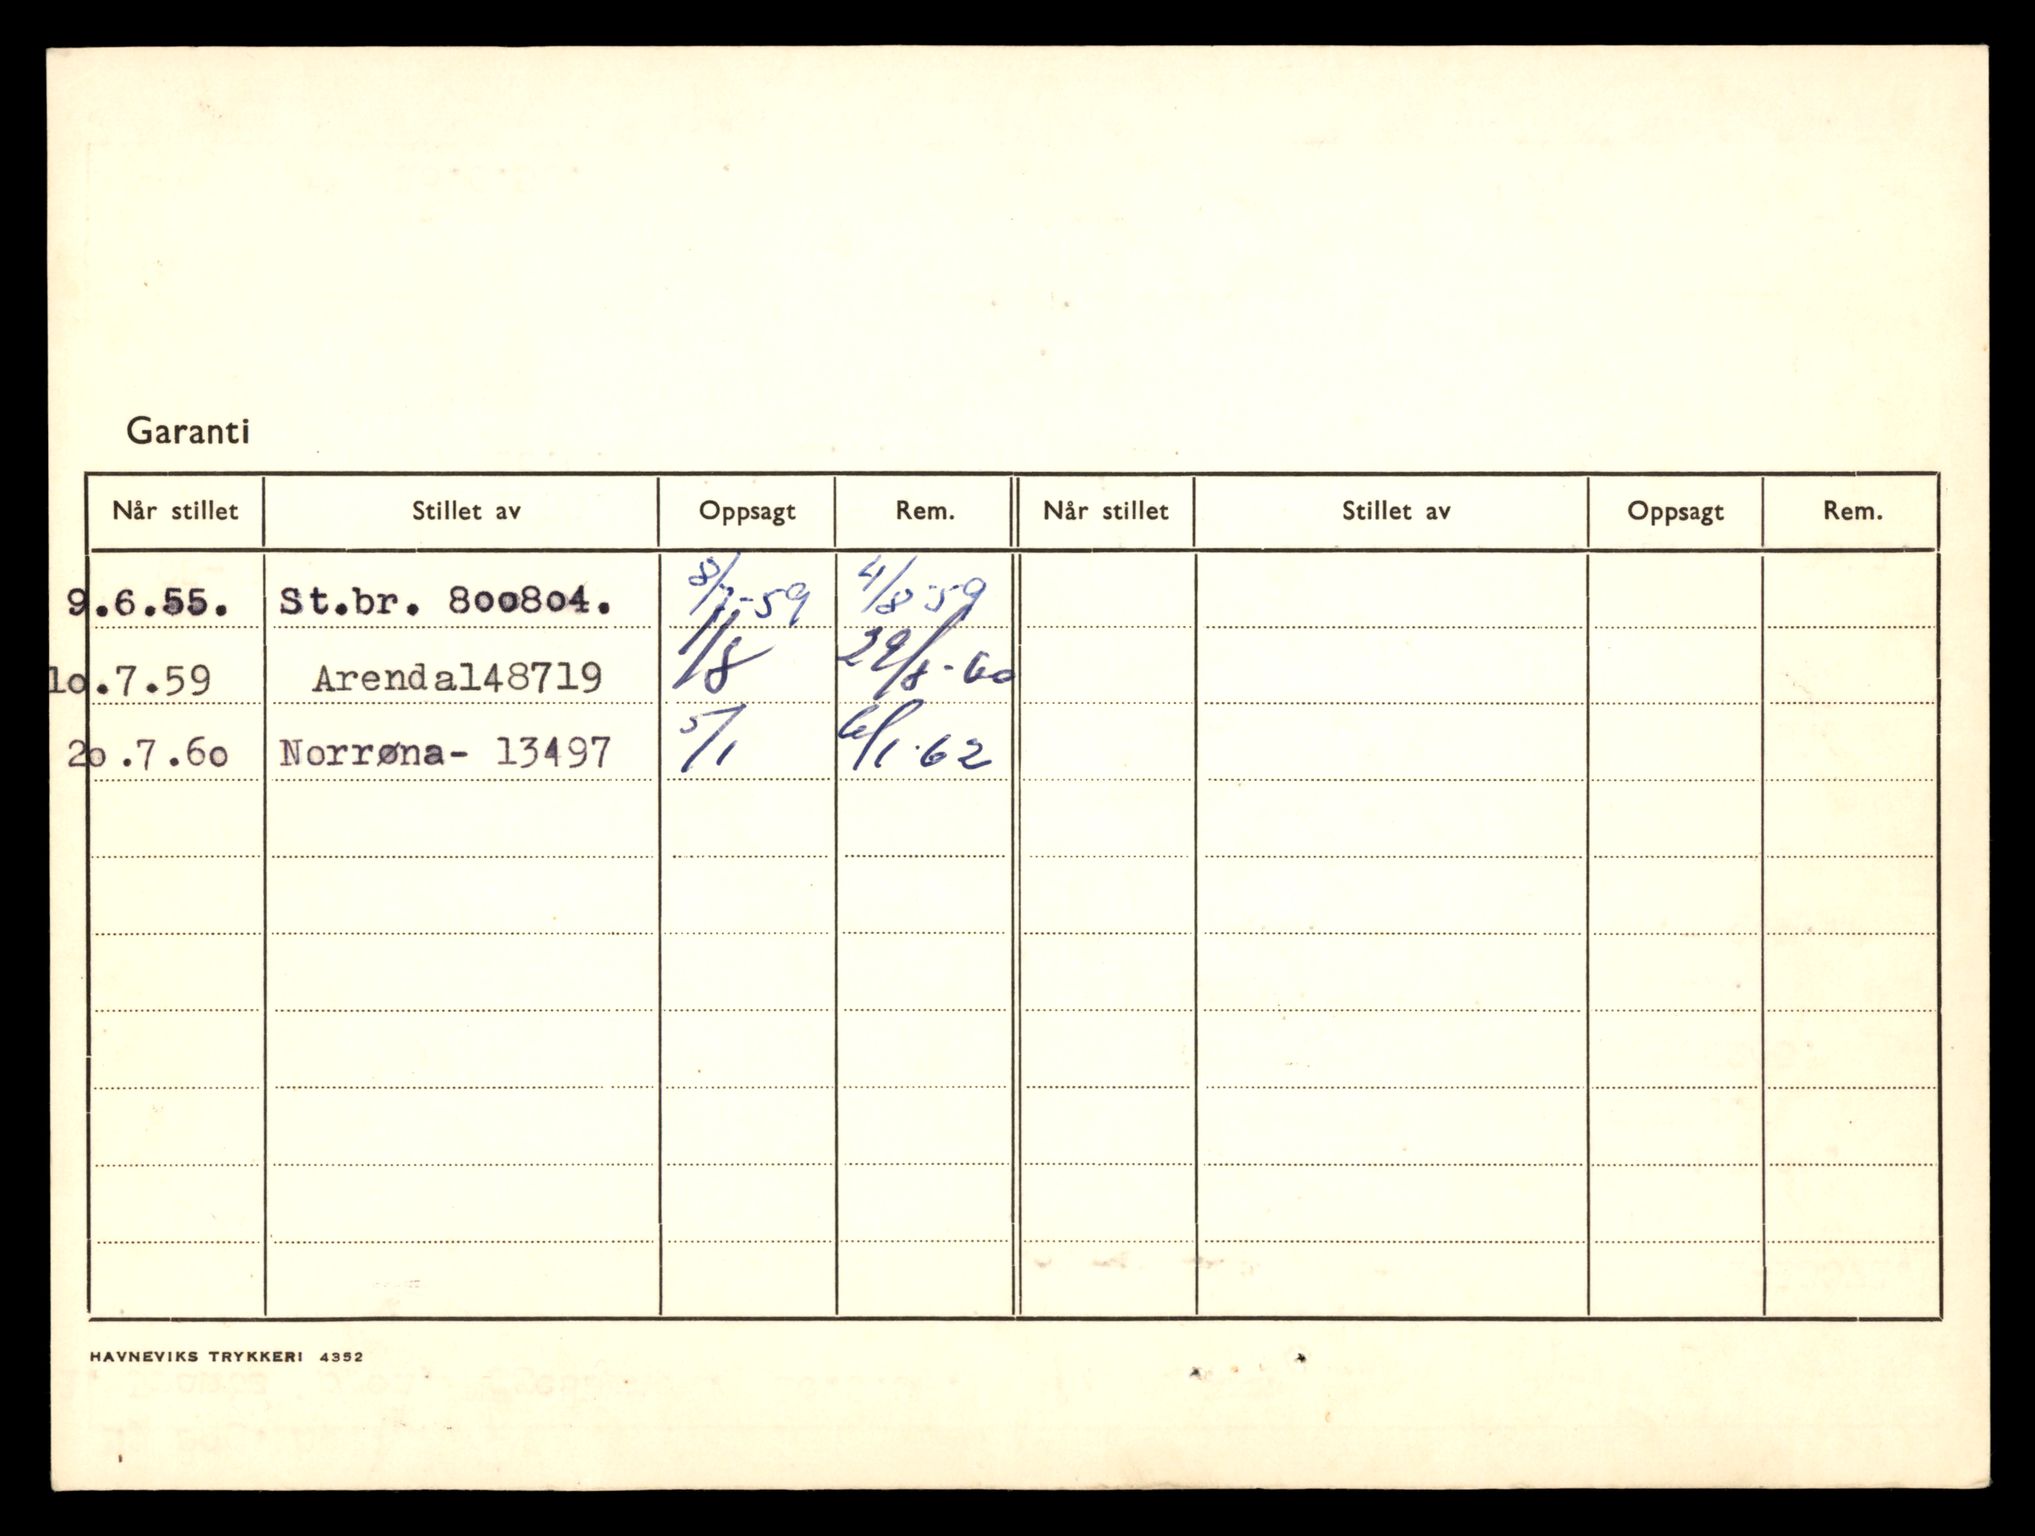 Garanti
Når stillet Stillet av Oppsagt Rem. Når stillet Stillet av Oppsagt Rem.
9.6.55. St.br. 800804. 8/7-59 4/8-59
10.7.59 Arendal48719 1/8 29/8-60
20.7.60 Norrøna- 13497 5/1 6/1-62
HAVNEVIKS TRYKKERI 4352